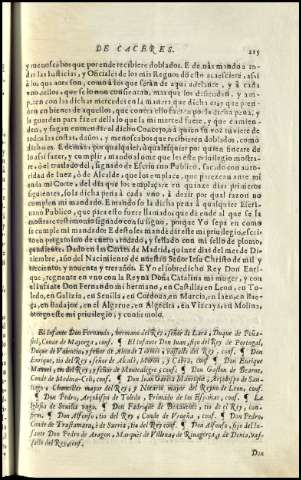 DE CACERES. 215
y menoscabos que por ende recibiere doblados. E de mas mando a to-
das las Iusticias, y Oficiales de los mis Regnos dò esto acaesciere, assi
à los que aora son, como à los que seràn de aqui adelante, y à cada
uno dellos, que se lo non consientan, mas que los defiendan, y am-
paren con las dichas mercedes en la manera que dicha es, y que pren-
dan en bienes de aquellos, que contra ello fueren por la dicha pena, y
la guarden para fazer della lo que la mi merced fuere, y que emien-
den, y fagan enmendar al dicho Concejo, ò à quien su voz tuviere de
todas las costas, daños, y menoscabos que recibieren doblados, como
dicho es. E demàs por qualquier, ò qualesquier por quien fincare de
lo assi fazer, y complir, mando al ome que les este privilegio mostra-
re, ò el traslado del, signado de Escrivano Publico, sacado con auto-
ridad de Iuez, ò de Alcalde, que los emplace, que parezcan ante mi
en la mi Corte, del dia que los emplazare en quince dias primeros
siguientes, so la dicha pena à cada uno, à dezir por qual razon no
complen mi mandado. E mando so la dicha pena à qualquier Escri-
vano Publico, que para esto fuere llamado, que dè ende al que se la
mostrare testimonio signado con su signo, porque Yo sepa en como
se cumple mi mandado. E desto les mandè dar este mi privilegio, escri-
to en pergamino de cuero rodado, y sellado con mi sello de plomo
pendiente. Dado en las Cortes de Madrid, quince dias del mes de De-
ziembre, año del Nacimiento de nuestro Señor Iesu Christo de mil y
trecientos y noventa y tres años. E Yo el sobredicho Rey Don Enri-
que, regnante en uno con la Reyna Doña Catalina mi muger, y con
el Infante Don Fernando mi hermano, en Castilla, en Leon, en To-
ledo, en Galizia, en Sevilla, en Cordova, en Murcia, en Iaen, en Bae-
za, en Badajoz, en el Algarve, en Algecira, en Vizcaya, en Molina,
otorgo este mi privilegio, y confirmolo.
El Infante Don Fernando, hermano del Rey, señor de Lara, Duque de Peña-
fiel, Conde de Mayorga, conf. ¶ El Infante Don Iuan, fijo del Rey de Portogal,
Duque de Valencia, y señor de Alva de Tormes, vassallo del Rey, conf. ¶ Don
Enrique, tio del Rey, señor de Alcalà, Moron, y Cabra, conf. ¶ Don Enrique
Manuel, tio del Rey, y señor de Montealegre, conf. ¶ Don Gaston de Bearne,
Conde de Medina-Celi, conf. ¶ Don Iuan Garcia Manrique, Arzobispo de San-
tiago, Chanciller mayor del Rey, y Notario mayor del Regno de Leon, conf. ¶
Don Pedro, Arzobispo de Toledo, Primado de las Españas, conf. ¶ La
Iglesia de Sevilla vaga. ¶ Don Fadrique de Benavente, tio de el Rey, con-
firm. ¶ Don Alfonso, tio del Rey, Conde de Viruña, conf. ¶ Don Pedro,
Conde de Trastamara, de Sarria, tio del Rey, conf. ¶ Don Alfonso, fijo del In-
fante Don Pedro de Aragon, Marques de Villena, de Rinagorça, è de Denia, vas-
sallo del Rey, conf.
Dia